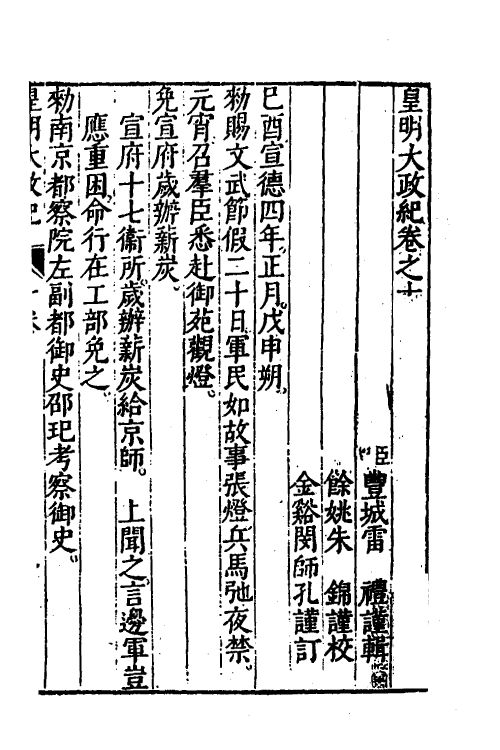 皇明大政紀卷之十
臣豐城雷　禮謹輯
餘姚朱　錦謹校
金谿閔師孔謹訂
己酉宣德四年正月戊申朔
勑賜文武節假二十日軍民如故事張燈兵馬弛夜禁
元宵召羣臣悉赴御苑觀燈
免宣府歲辦薪炭
宣府十七衞所歲辦薪炭給京師　上聞之言邊軍豈
應重困命行在工部免之
勑南京都察院左副都御史邵玘考察御史
皇明大政紀